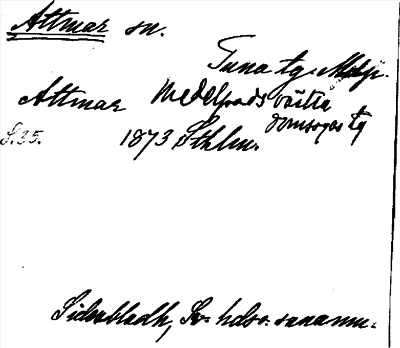 Attmar sn.
Tuna tg. Mdp.
Attmar Medelpads västra
domsagas tg
S. 35. 1873 Sthlm.
Sidenbladh, Sv. hdso.